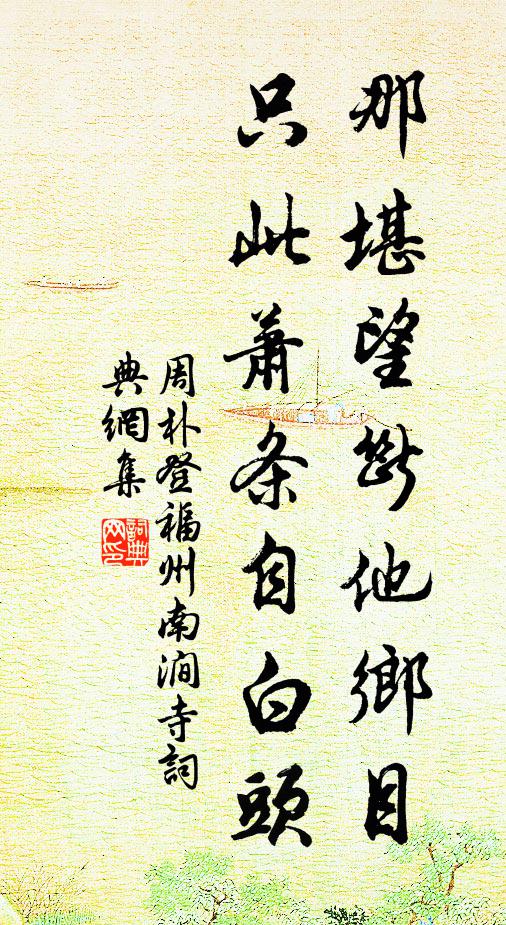 那堪望斷他鄉目
只此蕭条自白頭
周朴登福州南澗寺詞
典網集
詞典網印